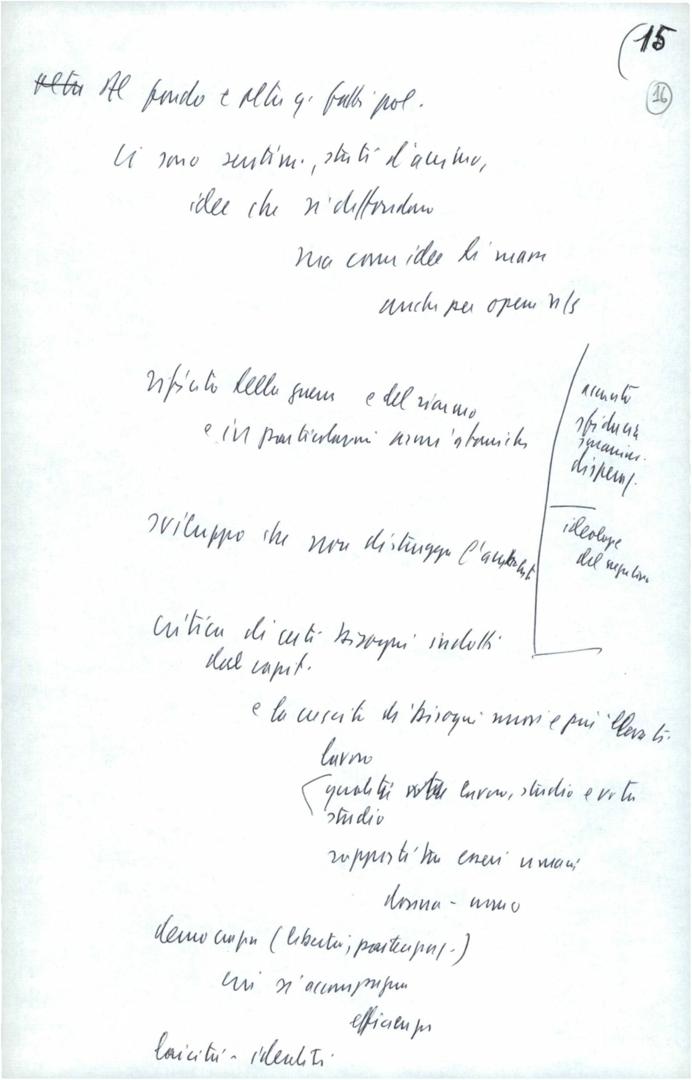 (15
16
Al fondo e oltre q. fatti pol.
Ci sono sentim., stati d'animo,
idee che si diffondono
ma come idee di mani
anche per opera n/s
rifiuto della guerra e del riarmo
e in particolare armi atomiche
sviluppo che non distrugga l'ambiente
critica di certi bisogni indotti
dal capit.
e la crescita di bisogni nuovi e più elevati.
lavoro
qualità lavoro, studio e vita
studio
rapporti tra esseri umani
donna - uomo
democrazia (libertà, partecipaz.)
cui si accompagna
efficienza
laicità - identità
sfiducia
disperaz.
ideologie
del negativo